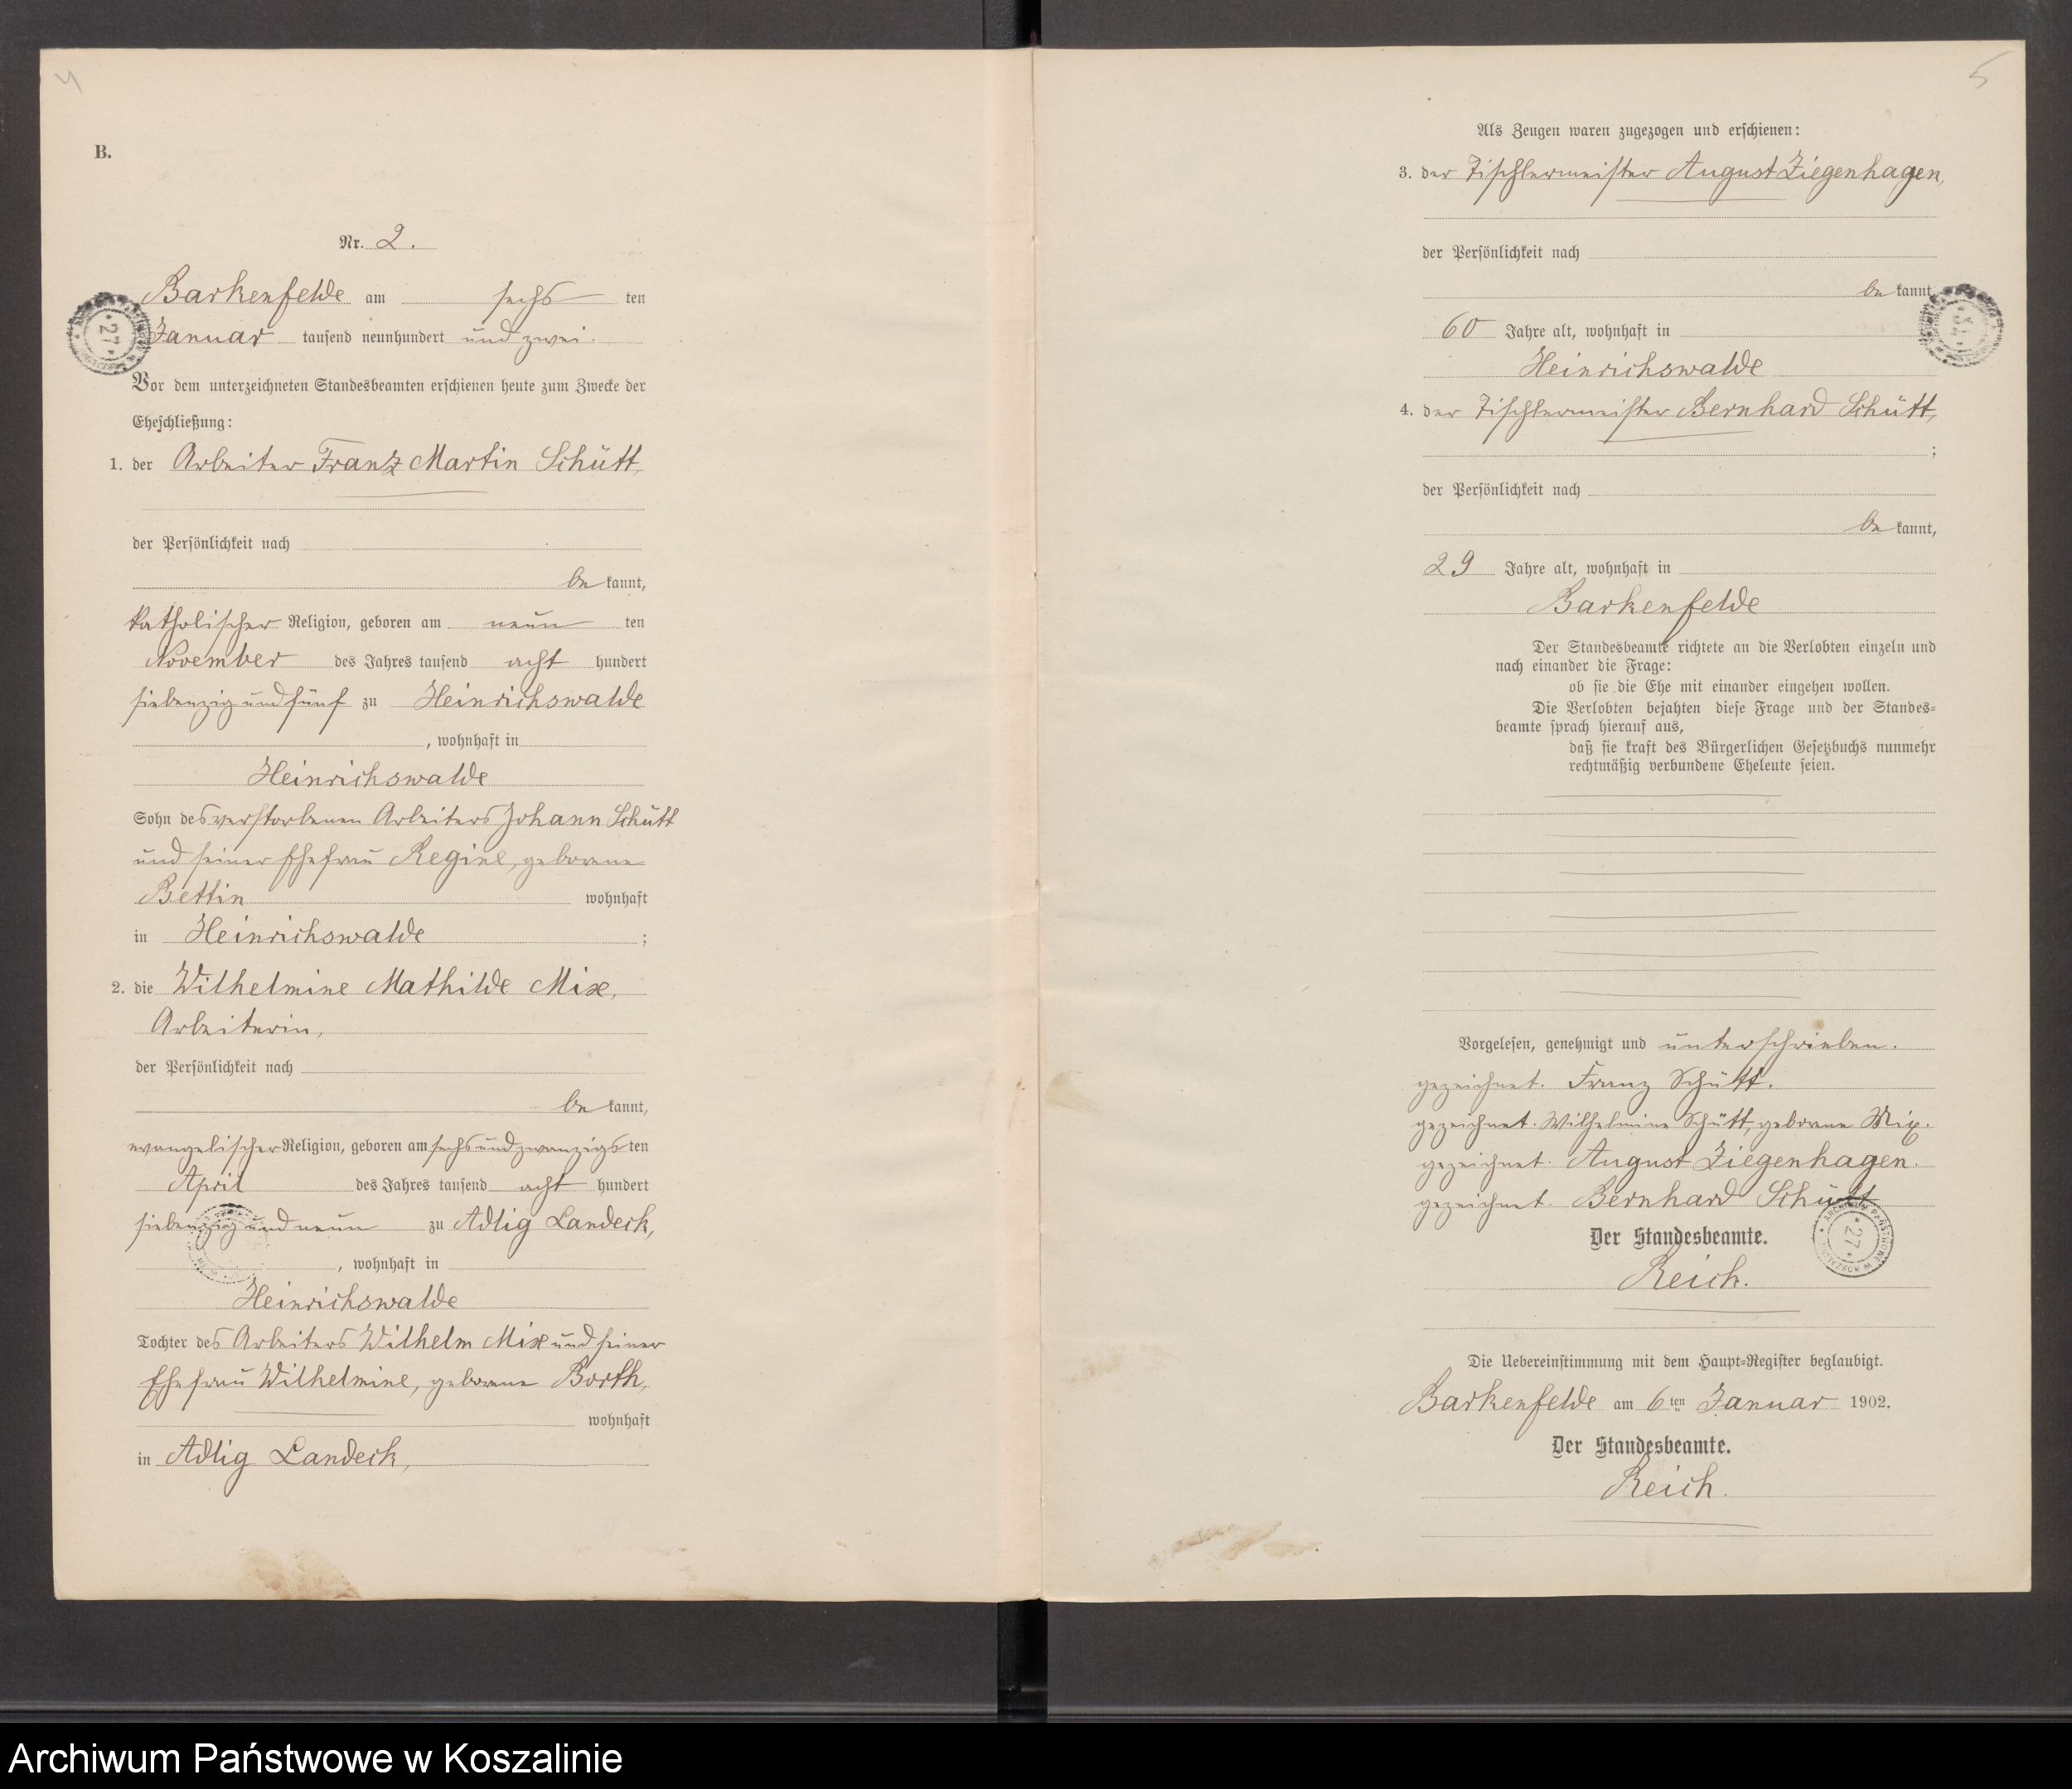 4
B.
Nr. 2.
Barkenfelde am sechs ten
Januar tausend neunhundert und zwei.
Vor dem unterzeichneten Standesbeamten erschienen heute zum Zwecke der
Eheschließung:
1. der Arbeiter Franz Martin Schütt,
der Persönlichkeit nach
be kannt,
katholischer Religion, geboren am neun ten
November des Jahres tausend acht hundert
siebenzig und fünf zu Heinrichswalde
, wohnhaft in
Heinrichswalde
Sohn des verstorbenen Arbeiters Johann Schütt
und seiner Ehefrau Regine, geborene
Bettin wohnhaft
in Heinrichswalde ;
2. die Wilhelmine Mathilde Mix,
Arbeiterin,
der Persönlichkeit nach
be kannt,
evangelischer Religion, geboren am sechsundzwanzigs ten
April des Jahres tausend acht hundert
siebenzig und neun zu Adlig Landeck,
, wohnhaft in
Heinrichswalde
Tochter des Arbeiters Wilhelm Mix und seiner
Ehefrau Wilhelmine, geborene Borth,
wohnhaft
in Adlig Landeck,
5
Als Zeugen waren zugezogen und erschienen:
3. der Tischlermeister August Ziegenhagen,
der Persönlichkeit nach
be kannt,
60 Jahre alt, wohnhaft in
Heinrichswalde
4. der Tischlermeister Bernhard Schütt,
;
der Persönlichkeit nach
be kannt,
29 Jahre alt, wohnhaft in
Barkenfelde
Der Standesbeamte richtete an die Verlobten einzeln und
nach einander die Frage:
ob sie die Ehe mit einander eingehen wollen.
Die Verlobten bejahten diese Frage und der Standes-
beamte sprach hierauf aus,
daß sie kraft des Bürgerlichen Gesetzbuchs nunmehr
rechtmäßig verbundene Eheleute seien.
Vorgelesen, genehmigt und unterschrieben.
gezeichnet. Franz Schütt.
gezeichnet. Wilhelmine Schütt, geborene Mix.
gezeichnet. August Ziegenhagen.
gezeichnet. Bernhard Schütt
Der Standesbeamte.
ARCHIWUM PAŃSTWOWE W KOSZALINIE * 27 *
Reich.
Die Uebereinstimmung mit dem Haupt-Register beglaubigt.
Barkenfelde am 6ten Januar 1902.
Der Standesbeamte.
Reich.
Archiwum Państwowe w Koszalinie